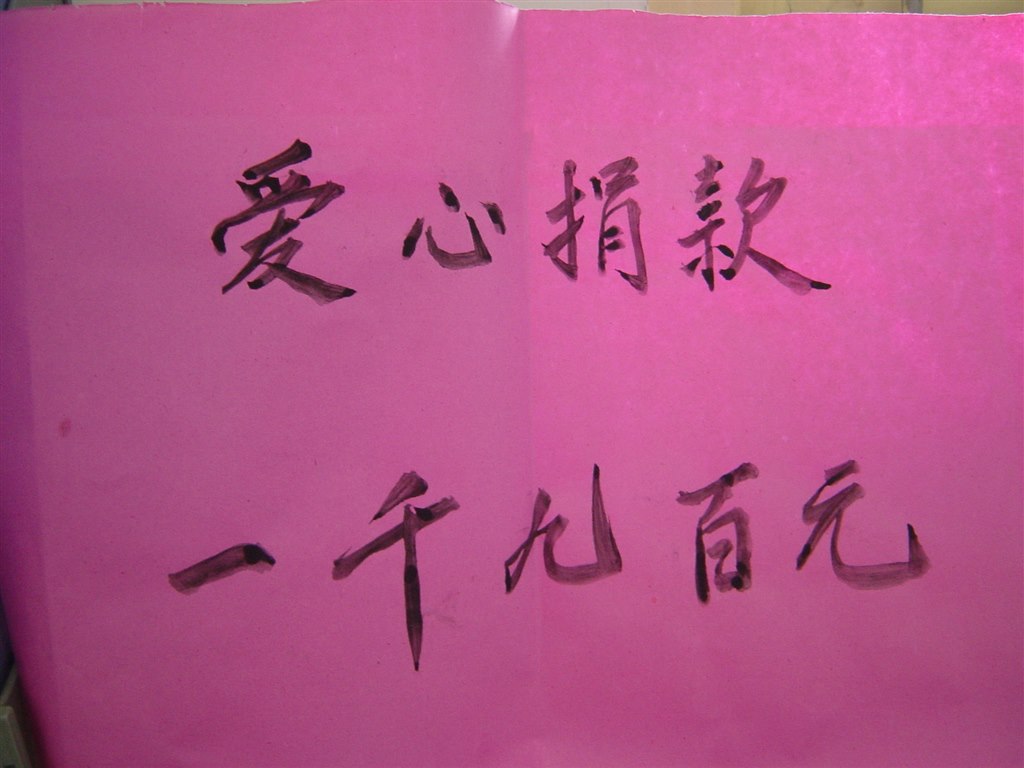 爱心捐款
一千九百元